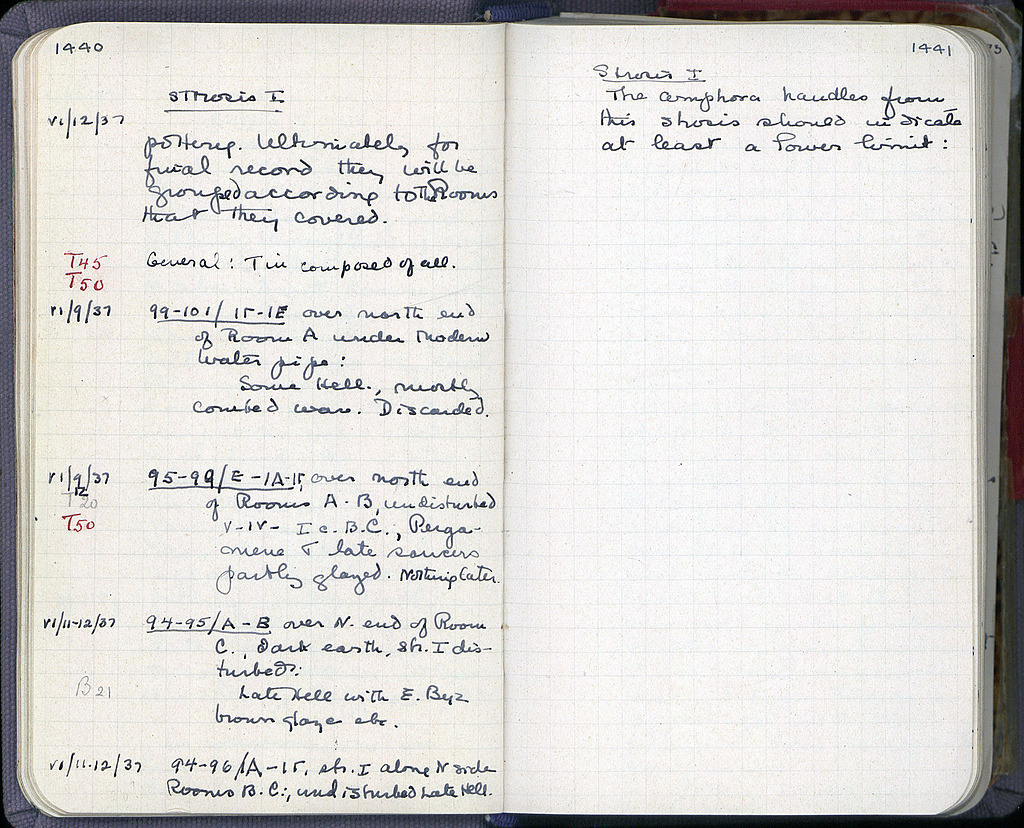 1440
Strosis I
VI/12/37
pottery. Ultimately for
final record they will be
grouped according to the Rooms
that they covered.
T45
T50
General: Tin composed of all.
VI/9/37 99-101/ΙΓ-ΙΕ over north end
of Room A under modern
water pipe:
Some Hell., mostly
combed ware. Discarded.
VI/9/37 95-99/E-ΙΑ-ΙΓ, over north end
12
T20
of Rooms A-B, undisturbed
T50
V-IV- I c. B.C., Perga-
mene T late saucers
partly glazed. Nothing later.
VI/11-12/37 94-95/A-B over N. end of Room
C., Dark earth, str. I dis-
turbed:
B21
Late Hell with E. Byz
brown glaze etc.
VI/11-12/37 94-96/ΙΑ-ΙΓ, str. I along N side
Rooms B.C., undisturbed Late Hell.
1441
75
Strosis I
The amphora handles from
this strosis should indicate
at least a lower limit: